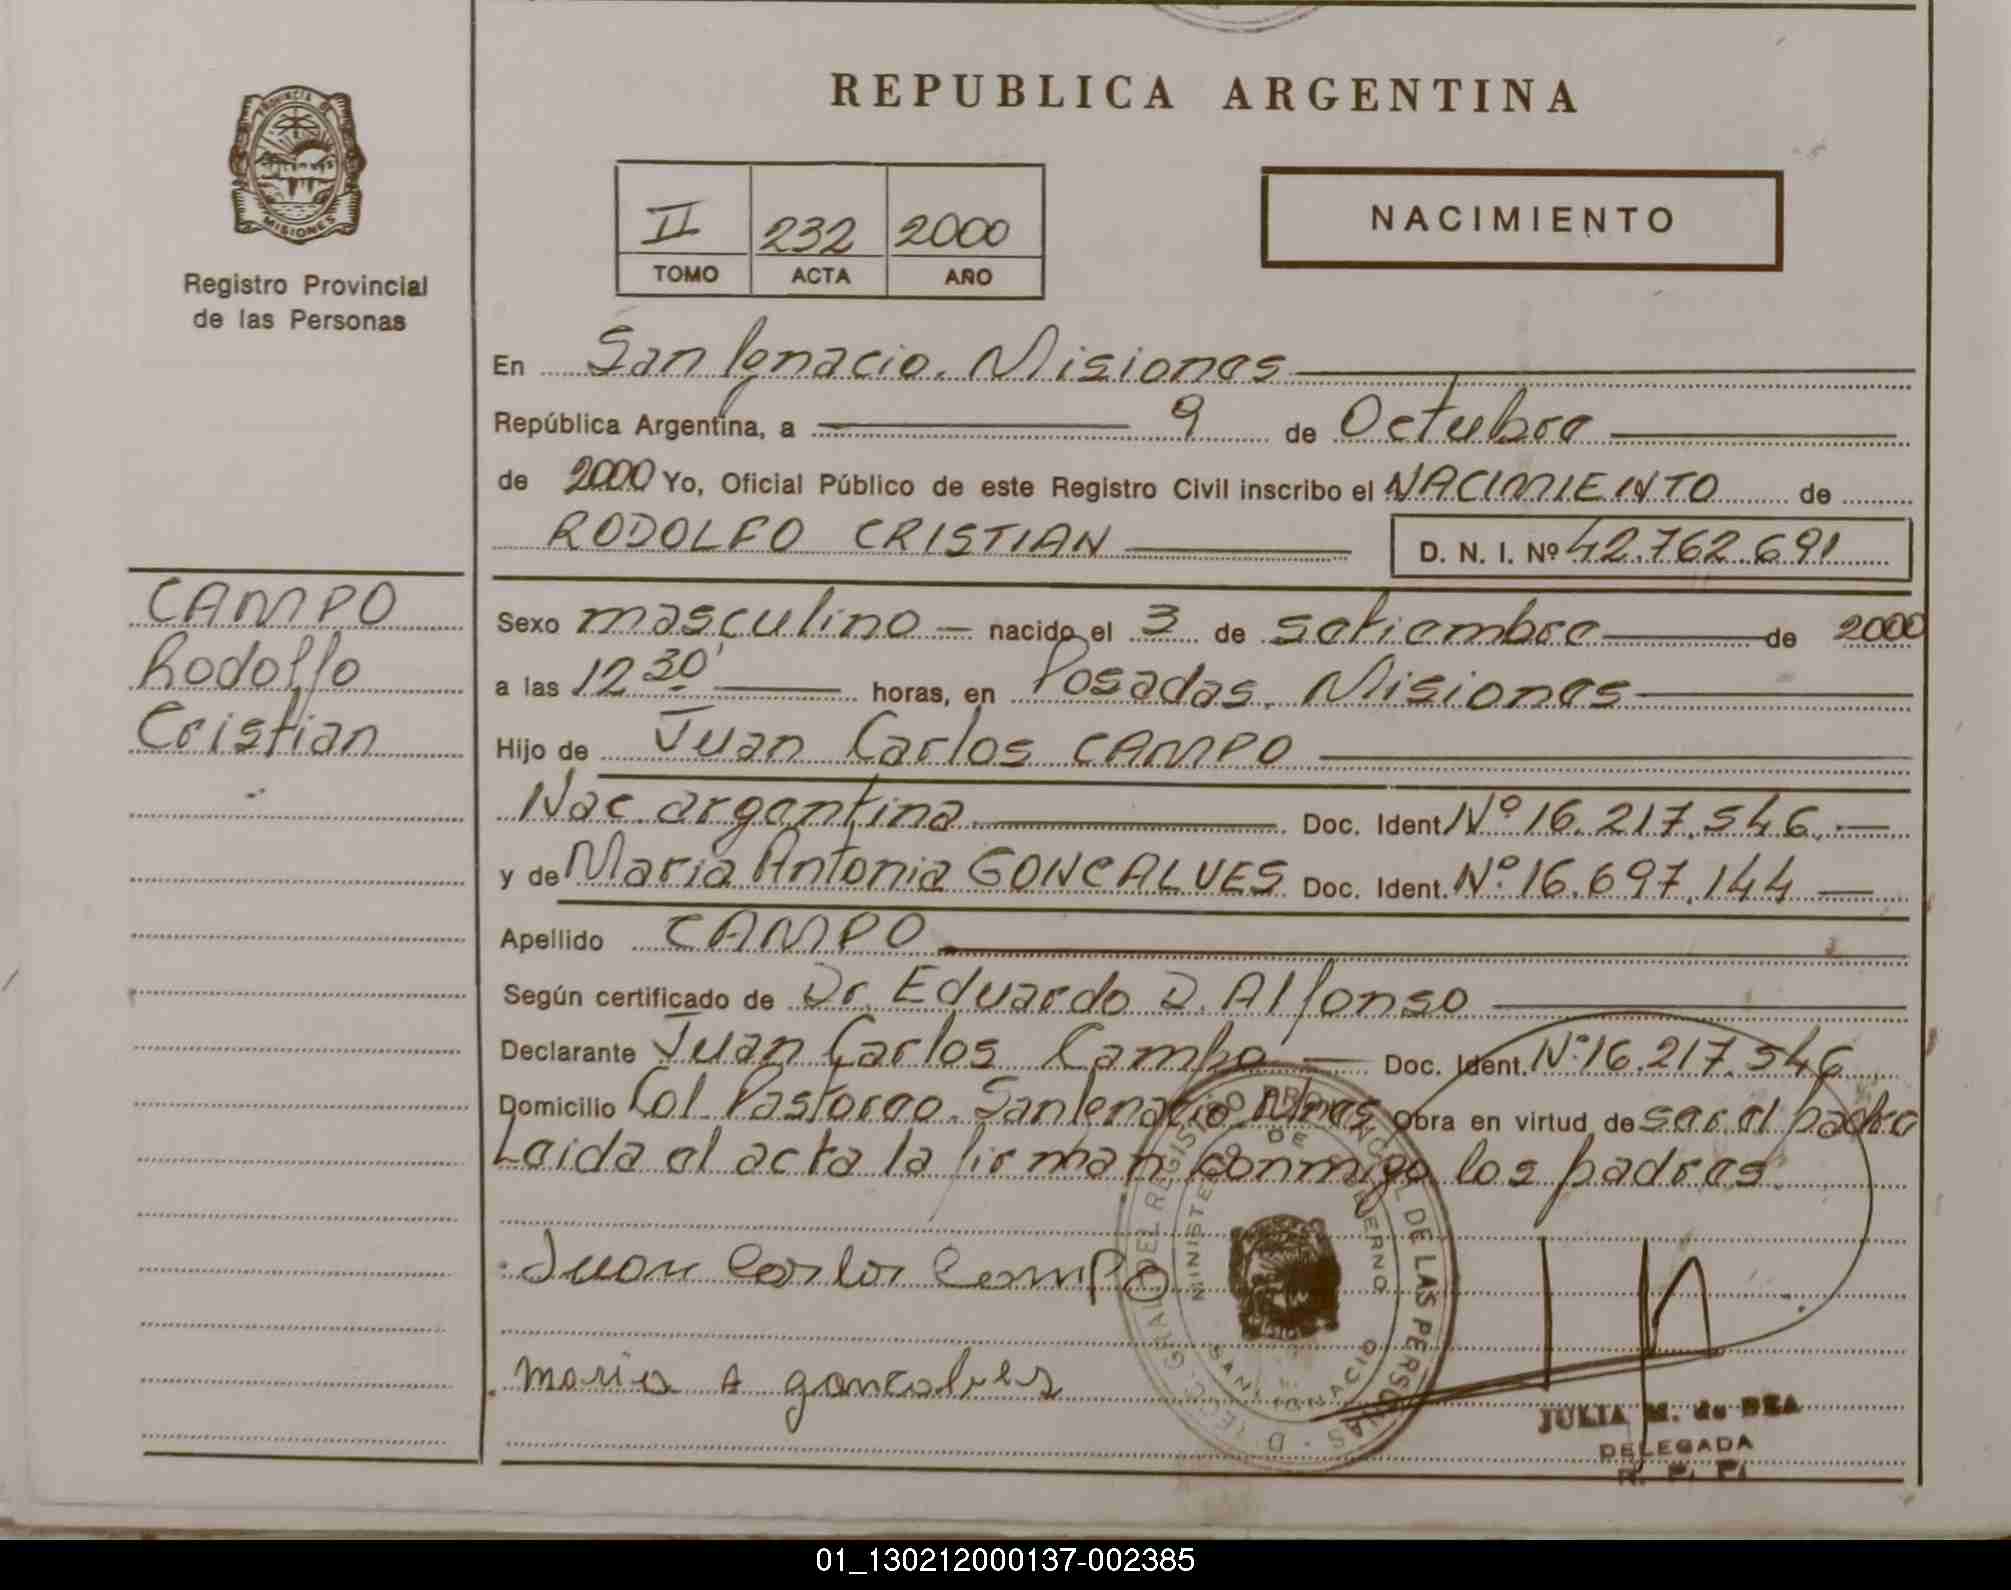 REPUBLICA ARGENTINA
PROVINCIA DE
MISIONES
Registro Provincial
de las Personas
II 232 2000
TOMO ACTA AÑO
NACIMIENTO
En San Ignacio. Misiones
República Argentina, a 9 de Octubre
de 2000 Yo, Oficial Público de este Registro Civil inscribo el NACIMIENTO de
RODOLFO CRISTIAN D. N. I. Nº 42.762.691
CAMPO
Rodolfo
Cristian
Sexo masculino nacido el 3 de setiembre de 2000
a las 12 30' horas, en Posadas. Misiones
Hijo de Juan Carlos CAMPO
Nac. argentina Doc. Ident. Nº 16.217.546.
y de Maria Antonia GONCALVES Doc. Ident. Nº 16.697.144
Apellido CAMPO
Según certificado de Dr. Eduardo D. Alfonso
Declarante Juan Carlos Campo Doc. Ident. Nº 16.217.546
Domicilio Col. Pastoreo. San Ignacio Mnes Obra en virtud de ser el padre
Leida el acta la firman conmigo los padres.
Juan Carlos Campo
maria A goncalves
DIREC. GRAL. DEL REGISTRO PROVINCIAL DE LAS PERSONAS
MINISTERIO DE GOBIERNO
SAN IGNACIO
JULIA M. de BEA
DELEGADA
R. P. P.
01_130212000137-002385